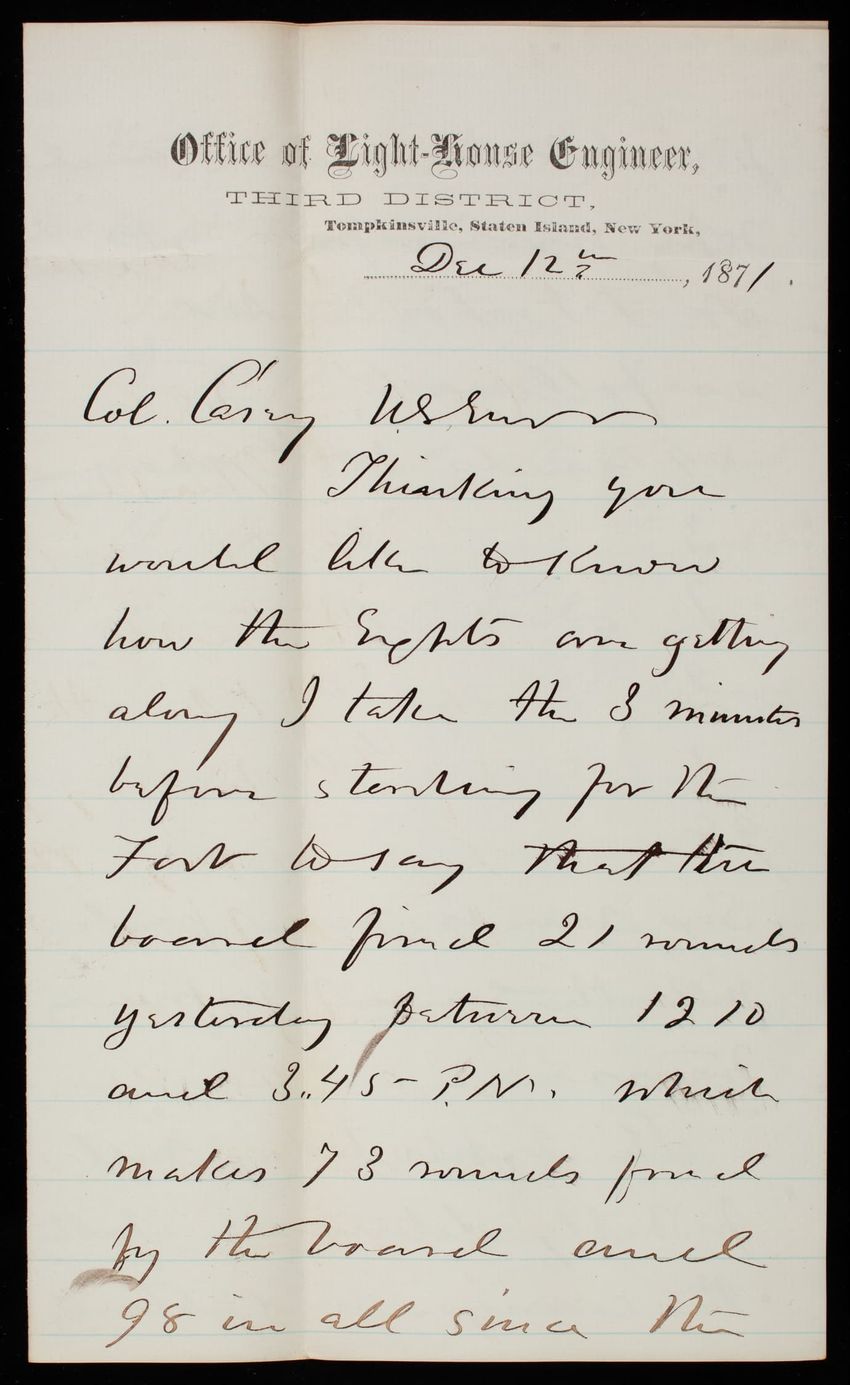 Office of Light-House Engineer,
THIRD DISTRICT,
Tompkinsville, Staten Island, New York,
Dec 12th, 1871.
Col. Casey U.S. Engrs
Thinking you
would like to know
how the Eights are getting
along I take the 3 minutes
before starting for the
Fort to say that the
board fired 21 rounds
yesterday between 12 10
and 3..45 P.M. which
makes 73 rounds fired
by the board and
98 in all since the